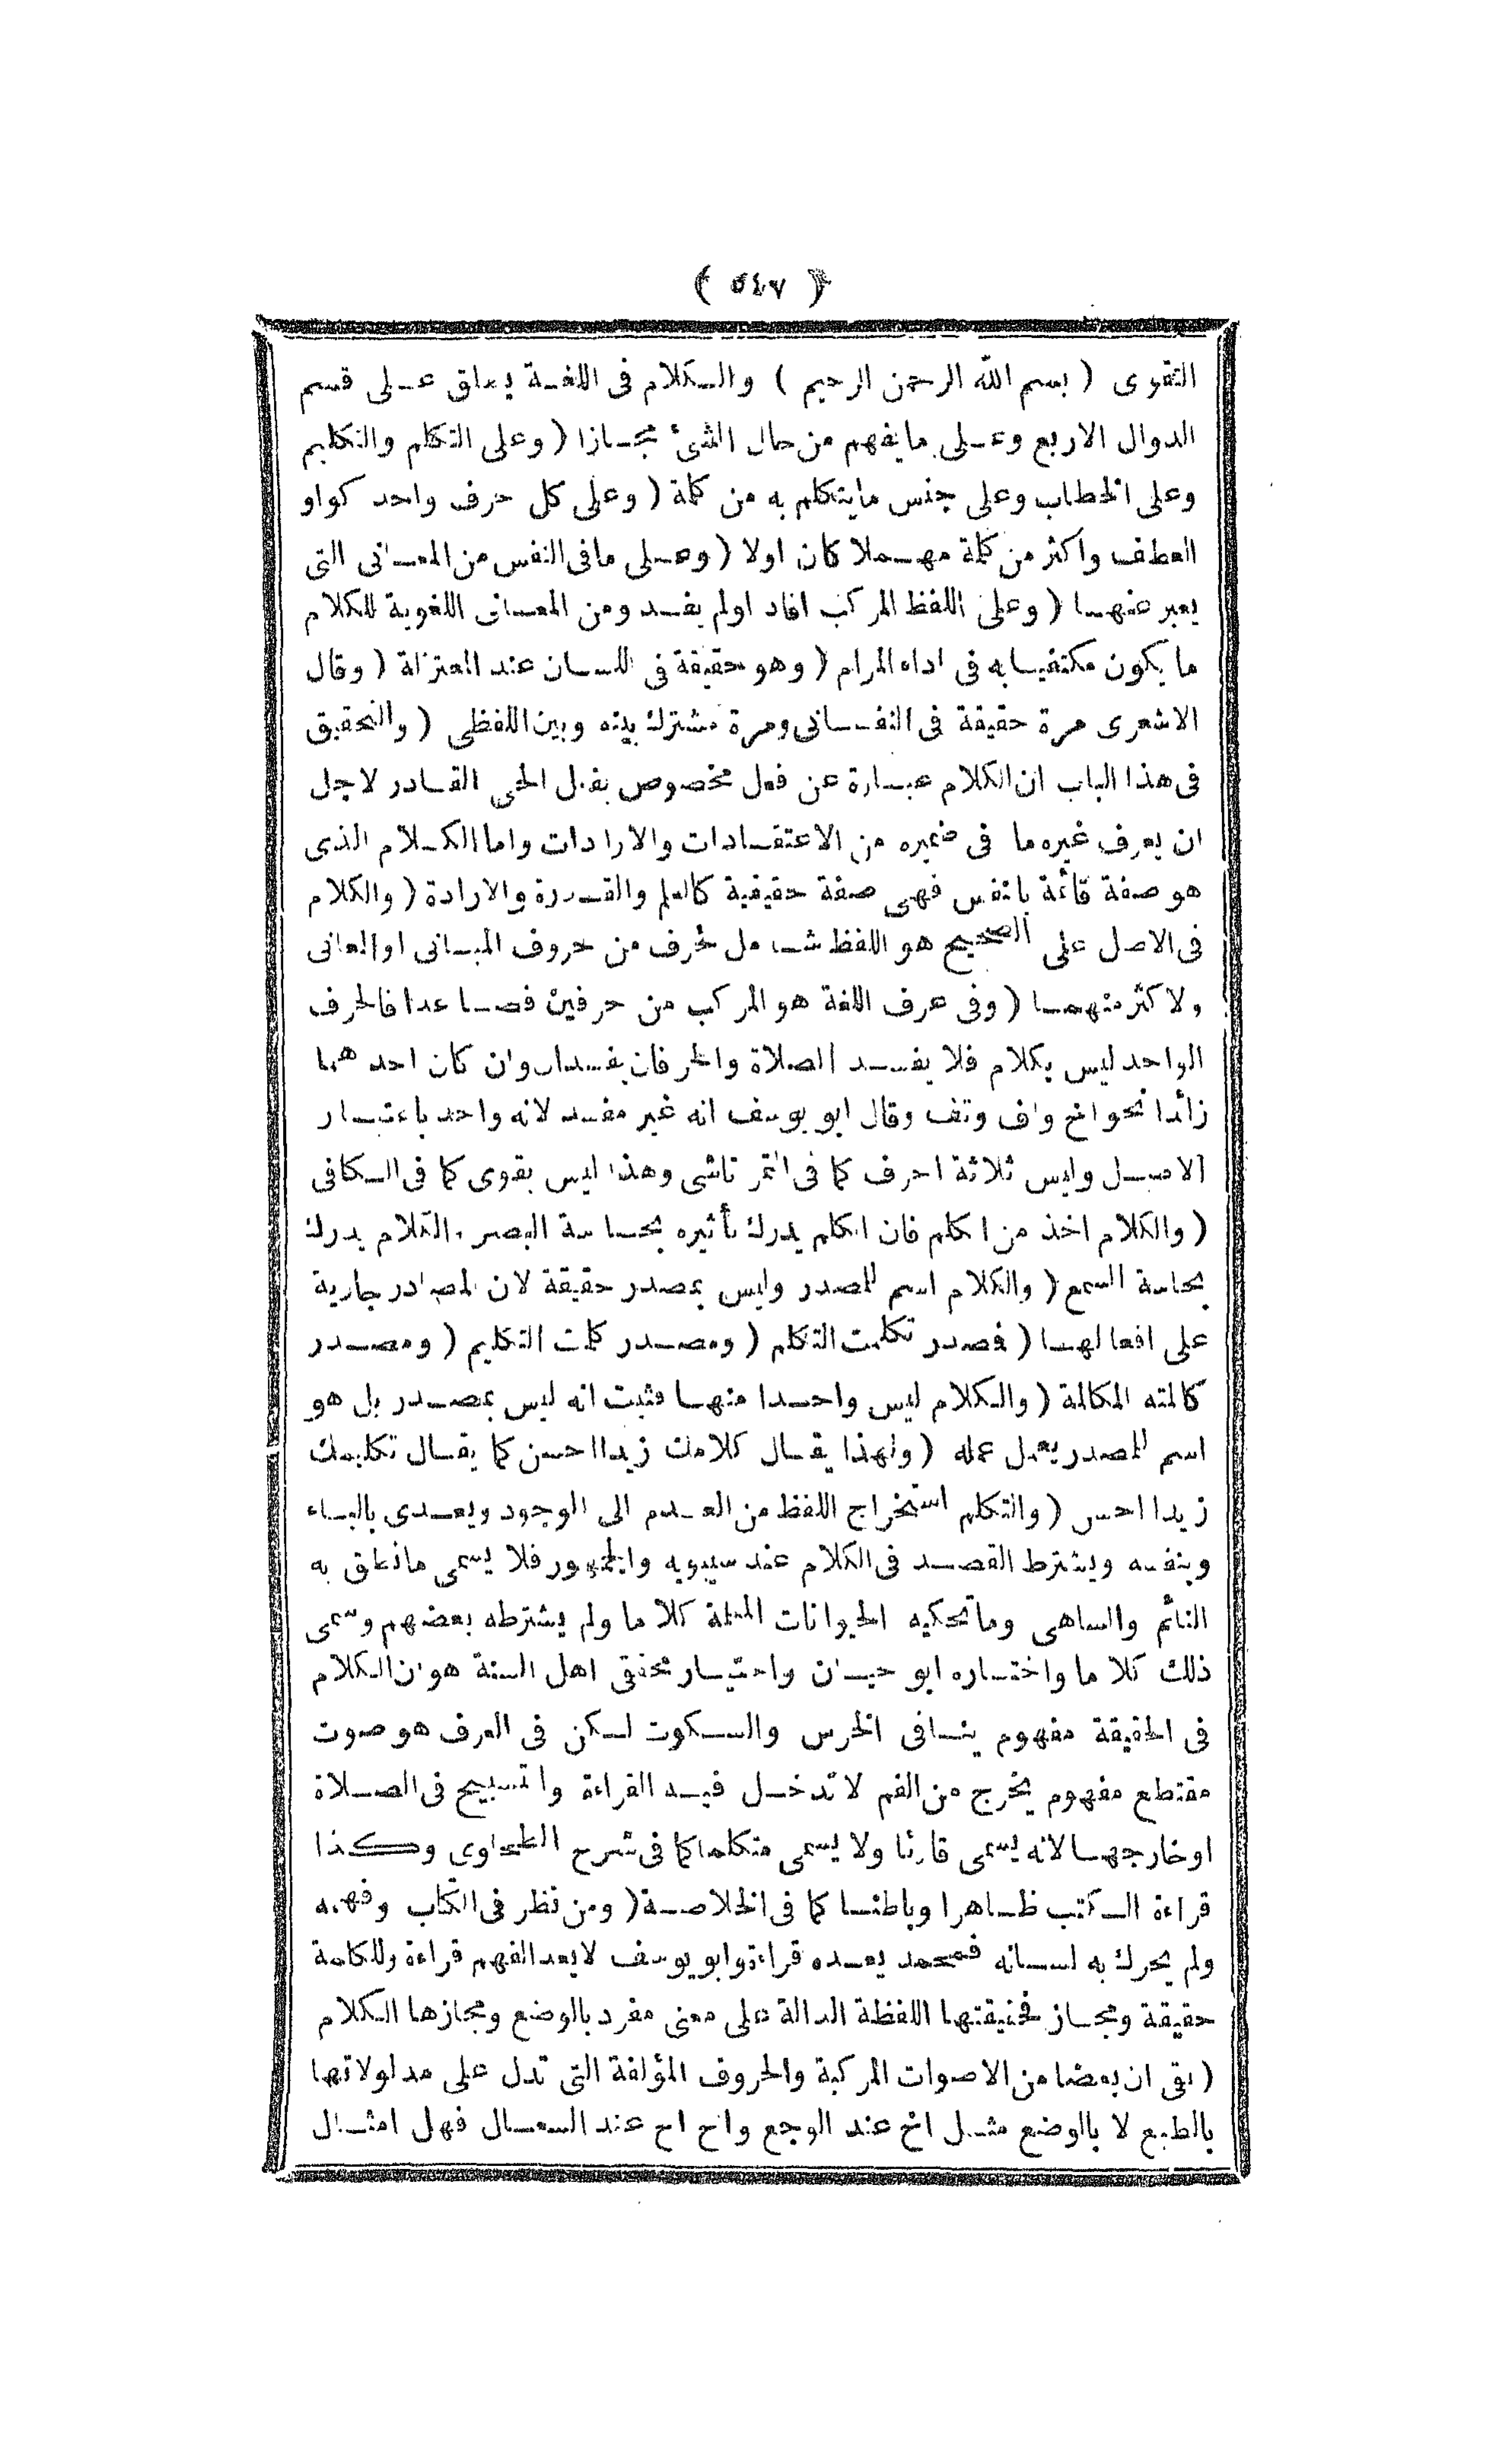 ( ٥٤٧ )
التقوى ( بسم الله الرحمن الرحيم ) والكلام فى اللغة يطلق على قسم
الدوال الاربع وعلى مايفهم من حال الشئ مجازا ( وعلى التكلم والتكليم
وعلى الخطاب وعلى جنس مايتكلم به من كلمة ( وعلى كل حرف واحد كواو
العطف واكثر من كلمة مهملا كان اولا ( وعلى مافى النفس من المعانى التى
يعبر عنها ( وعلى اللفظ المركب افاد اولم يفد ومن المعانى اللغوية للكلام
ما يكون مكتفيا به فى اداء المرام ( وهو حقيقة فى اللسان عند المعتزلة ( وقال
الاشعرى مرة حقيقة فى النفسانى ومرة مشترك بينه وبين اللفظى ( والتحقيق
فى هذا الباب ان الكلام عبارة عن فعل مخصوص يفعل الحى القادر لاجل
ان يعرف غيره ما فى ضميره من الاعتقادات والارادات واما الكلام الذى
هو صفة قائمة بالنفس فهى صفة حقيقية كالعلم والقدرة والارادة ( والكلام
فى الاصل على الصحيح هو اللفظ شامل لحرف من حروف المبانى اوالمعانى
ولاكثر منهما ( وفى عرف اللغة هو المركب من حرفين فصا عدا فالحرف
الواحد ليس بكلام فلا يفسد الصلاة والحرفان يفسدان وان كان احد هما
زائدا نحو اخ واف وتف وقال ابو يوسف انه غير مفسد لانه واحد باعتبار
الاصل وليس ثلاثة احرف كما فى التمر تاشى وهذا ليس بقوى كما فى الكافى
( والكلام اخذ من الكلم فان الكلم يدرك تأثيره بحاسة البصر والكلام يدرك
بحاسة السمع ( والكلام اسم للمصدر وليس بمصدر حقيقة لان المصادر جارية
على افعا لها ( فصدر تكلمت التكلم ( ومصدر كلت التكليم ( ومصدر
كالمته المكالمة ( والكلام ليس واحدا منها فثبت انه ليس بمصدر بل هو
اسم للمصدر يعمل عمله ( ولهذا يقال كلامك زيدا احسن كما يقال تكليمك
زيدا احسن ( والتكلم استخراج اللفظ من العدم الى الوجود ويعدى بالباء
وبنفسه ويشترط القصد فى الكلام عند سيبويه والجمهور فلا يسمى مانطق به
النائم والساهى وماتحكيه الحيوانات المعلمة كلا ما ولم يشترطه بعضهم وسمى
ذلك كلا ما واختاره ابو حيان واختيار محققى اهل السنة هو ان الكلام
فى الحقيقة مفهوم ينافى الخرس والسكوت لكن فى العرف هو صوت
مقتطع مفهوم يخرج من الفم لا تدخل فيه القراءة والتسبيح فى الصلاة
اوخارجها لانه يسمى قارئا ولا يسمى متكلما كما فى شرح الطحاوى وكذا
قراءة الكتب ظاهرا وباطنا كما فى الخلاصة ( ومن نظر فى الكتاب وفهمه
ولم يحرك به لسانه فمحمد يعده قراءة وابو يوسف لايعد الفهم قراءة وللكلمة
حقيقة ومجاز فحقيقتها اللفظة الدالة على معنى مفرد بالوضع ومجازها الكلام
( بقى ان بعضا من الاصوات المركبة والحروف المؤلفة التى تدل على مدلولاتها
بالطبع لا بالوضع مثل اخ عند الوجع واح اح عند السعال فهل امثال